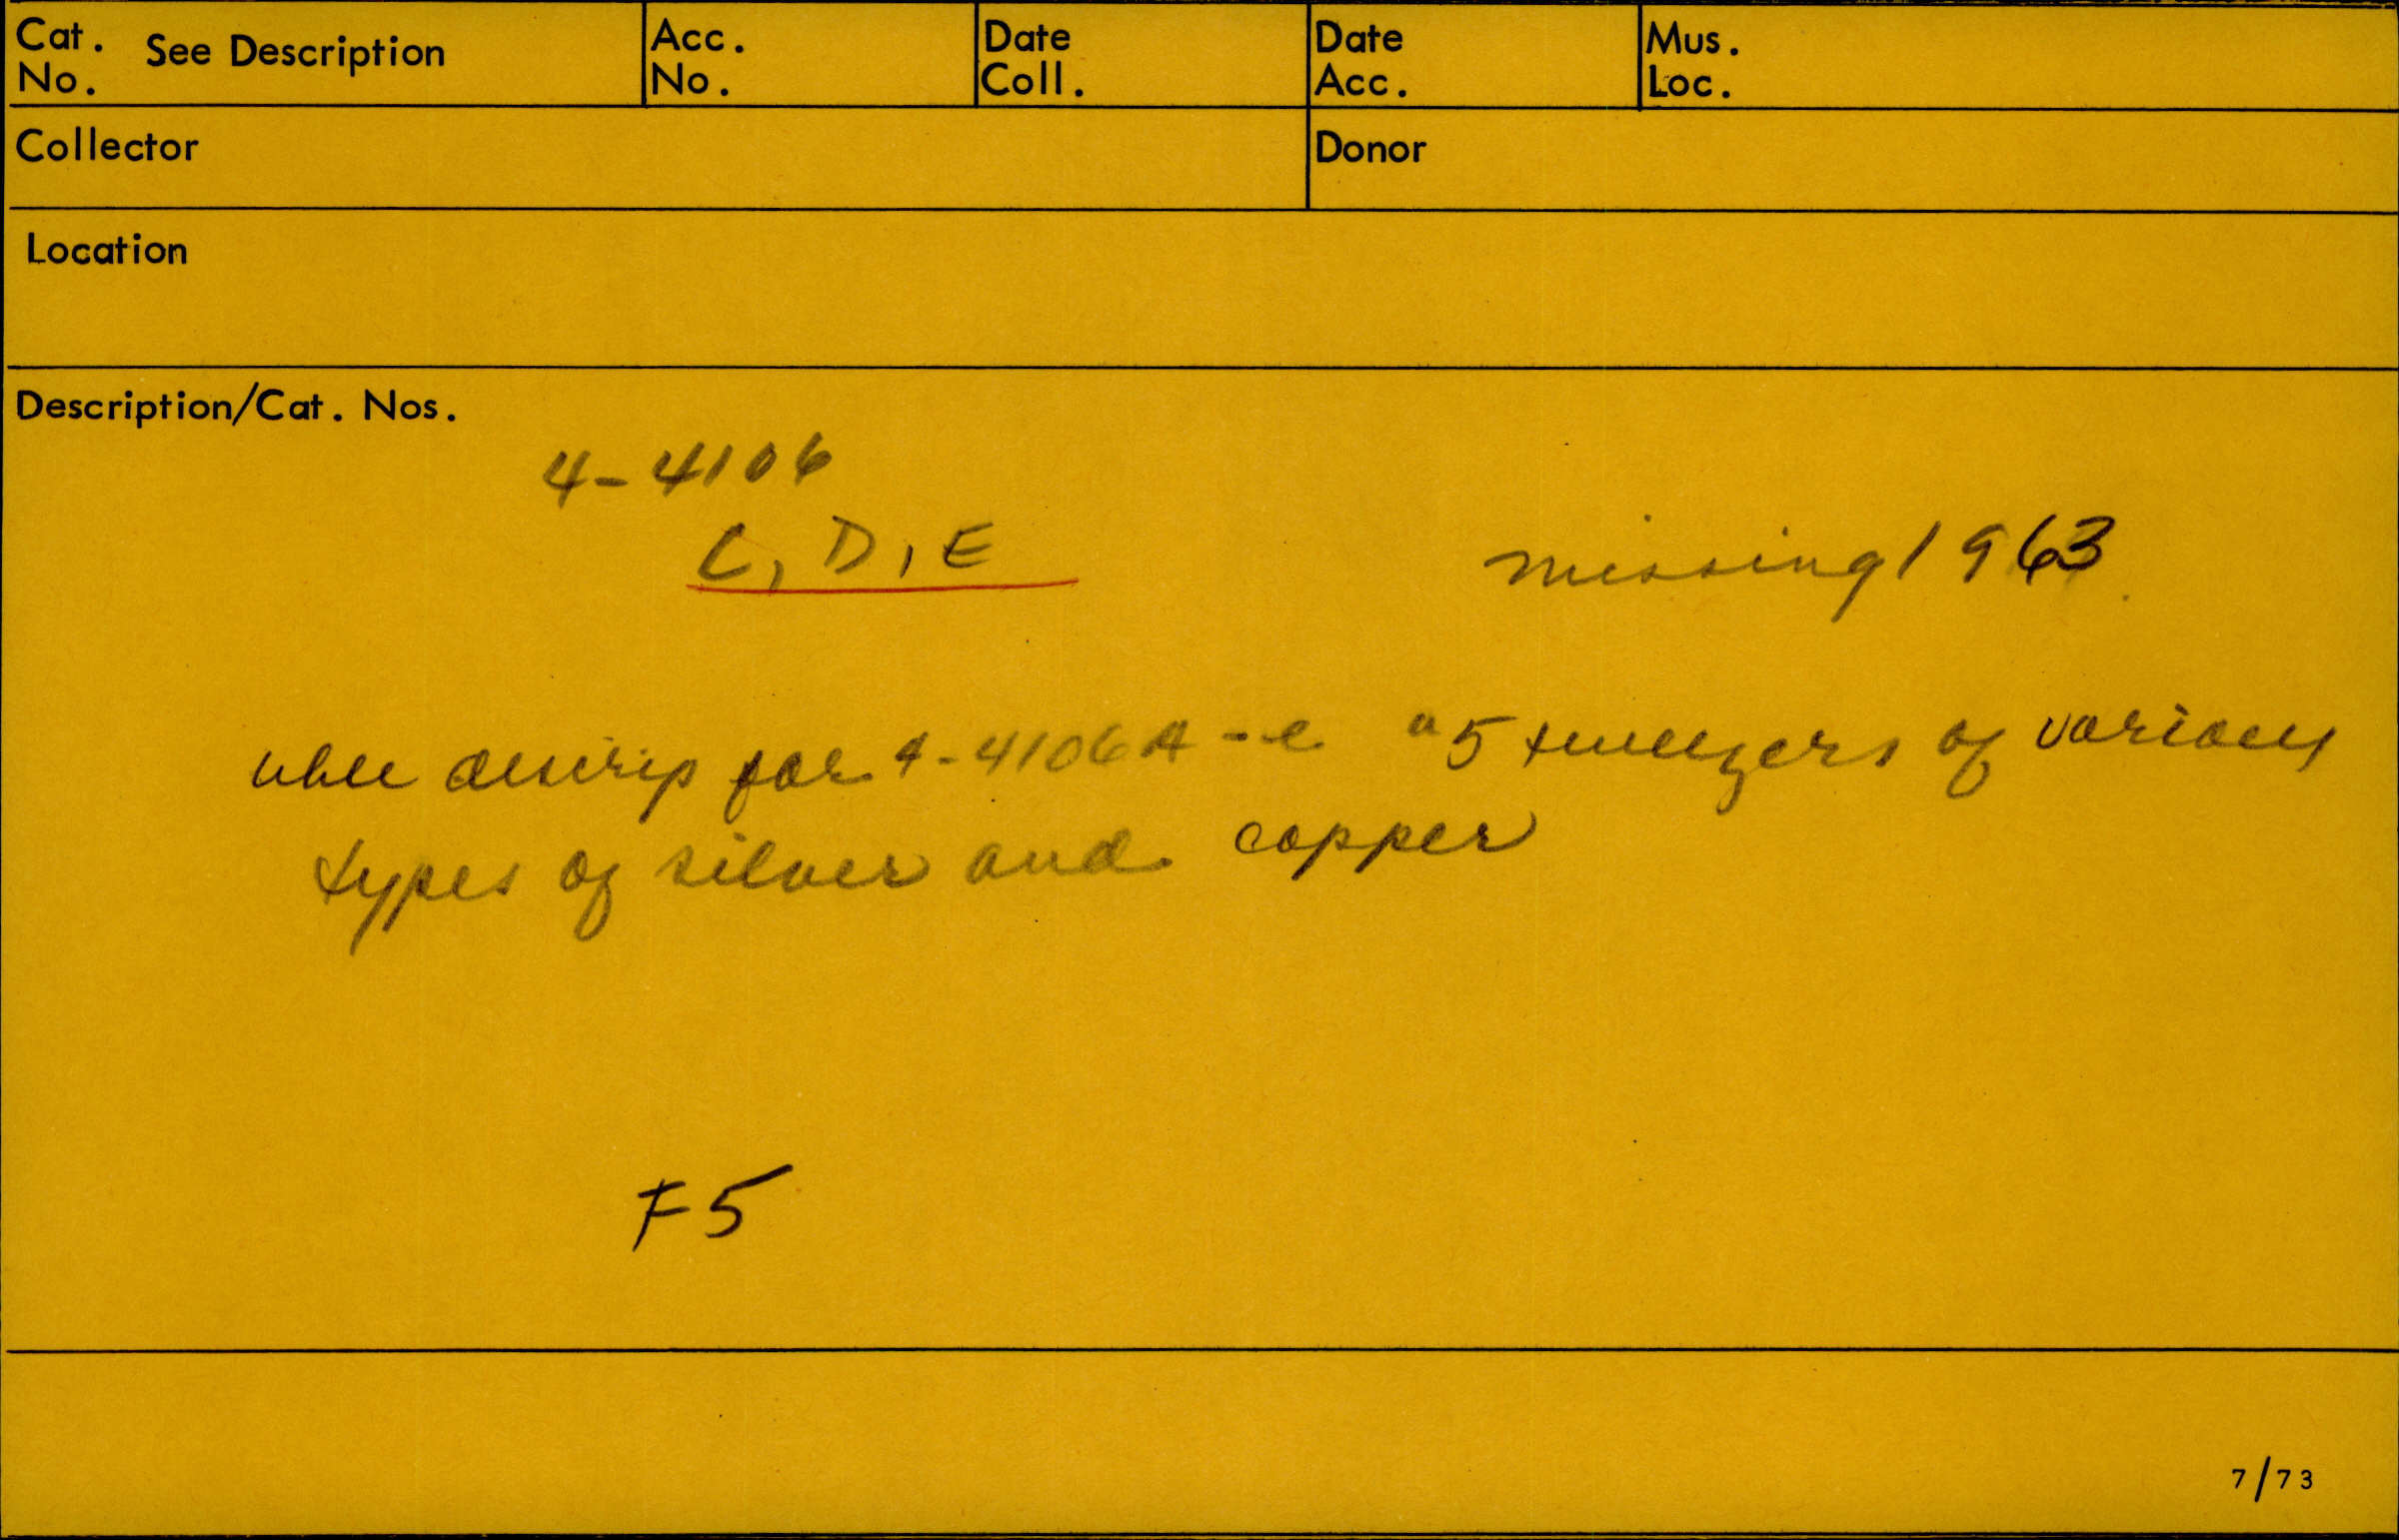 Cat. No. See Description
Acc. No.
Date Coll.
Date Acc.
Mus. Loc.
Collector
Donor
Location
Description/Cat. Nos.
4-4106
C, D, E
missing 1963
descrip for 4-4106A-e "5 tweezers of various
types of silver and copper
F5
7/73